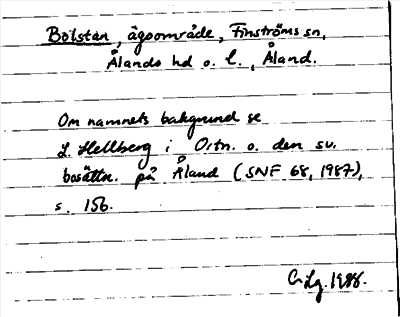 Bolstan, ägoområde, Finströms sn,
Ålands hd o. l., Åland.
Om namnets bakgrund se
L. Hellberg i Ortn. o. den sv.
bosättn. på Åland (SNF 68, 1987),
s. 156.
C. Lg. 1988.